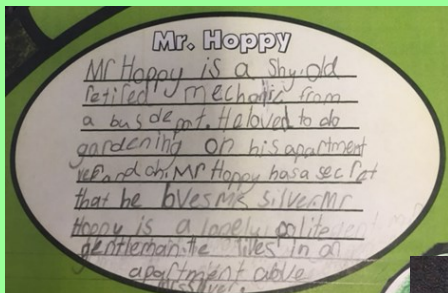 Mr. Hoppy
Mr Hoppy is a Shy, old
retired mechanic from
a bus depot. He loved to do
gardening on his apartment
Mr Hoppy has a secret
that he loves Ms silver. Mr
Hoppy is a lonely polite
gentleman. He lives in an
apartment above